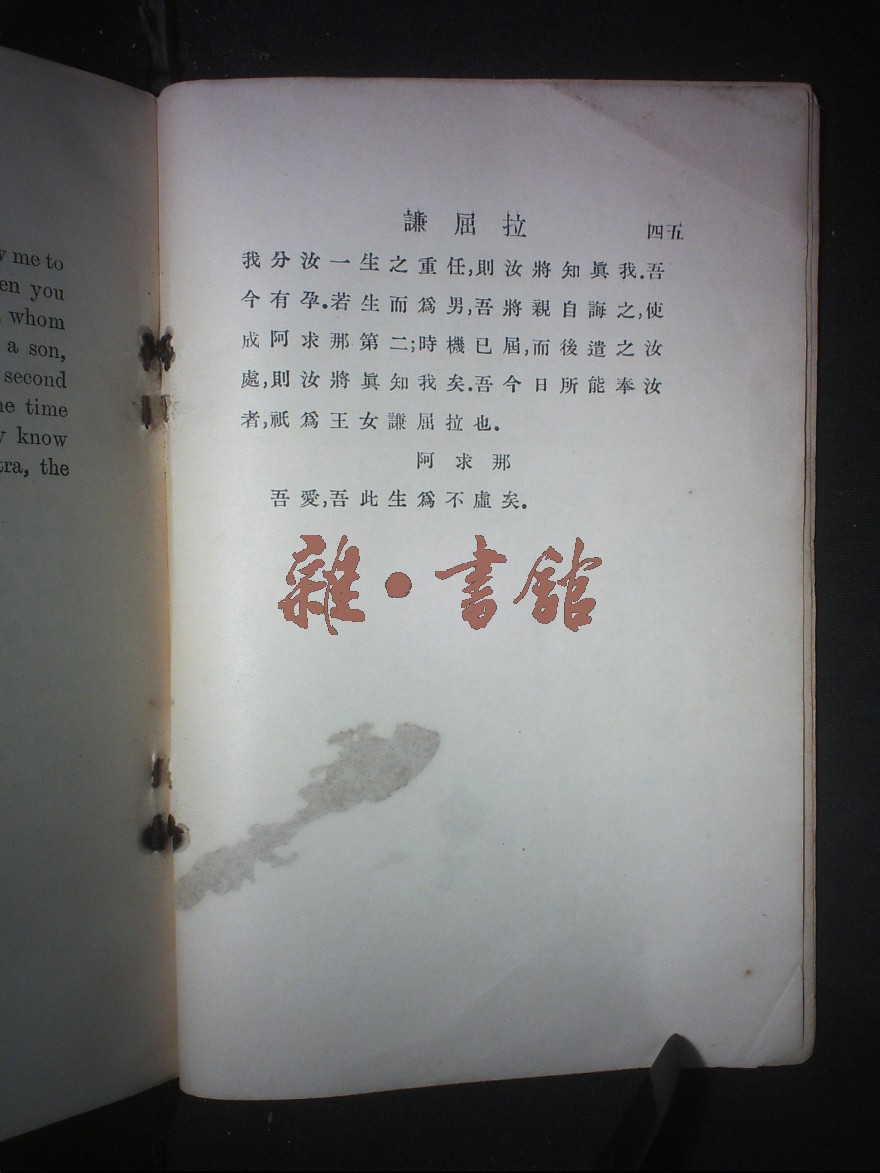 v me to
en you
whom
a son,
second
ne time
y know
tra, the
謙屈拉 四五
我分汝一生之重任,則汝將知眞我.吾
今有孕.若生而爲男,吾將親自誨之,使
成阿求那第二;時機已屆,而後遣之汝
處,則汝將眞知我矣.吾今日所能奉汝
者,祇爲王女謙屈拉也.
阿求那
吾愛,吾此生爲不虛矣.
雜·書館